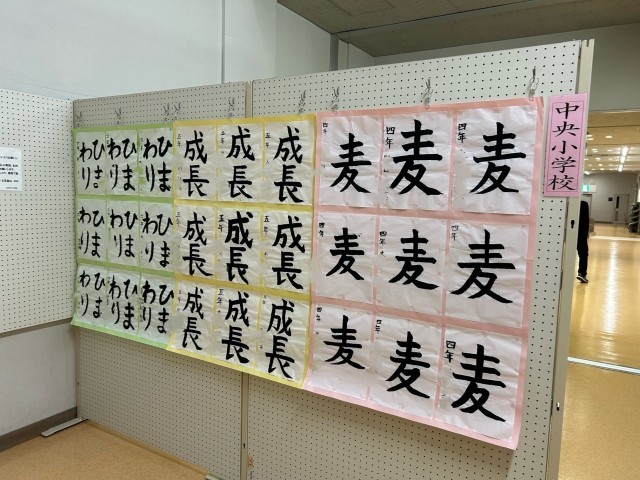 中央小学校
四年
麦
四年
麦
四年
麦
四年
麦
四年
麦
四年
麦
四年
麦
四年
麦
四年
麦
五年
成長
五年
成長
五年
成長
五年
成長
五年
成長
五年
成長
五年
成長
五年
成長
五年
成長
ひま
わり
ひま
わり
ひま
わり
ひま
わり
ひま
わり
ひま
わり
ひま
わり
ひま
わり
ひま
わり